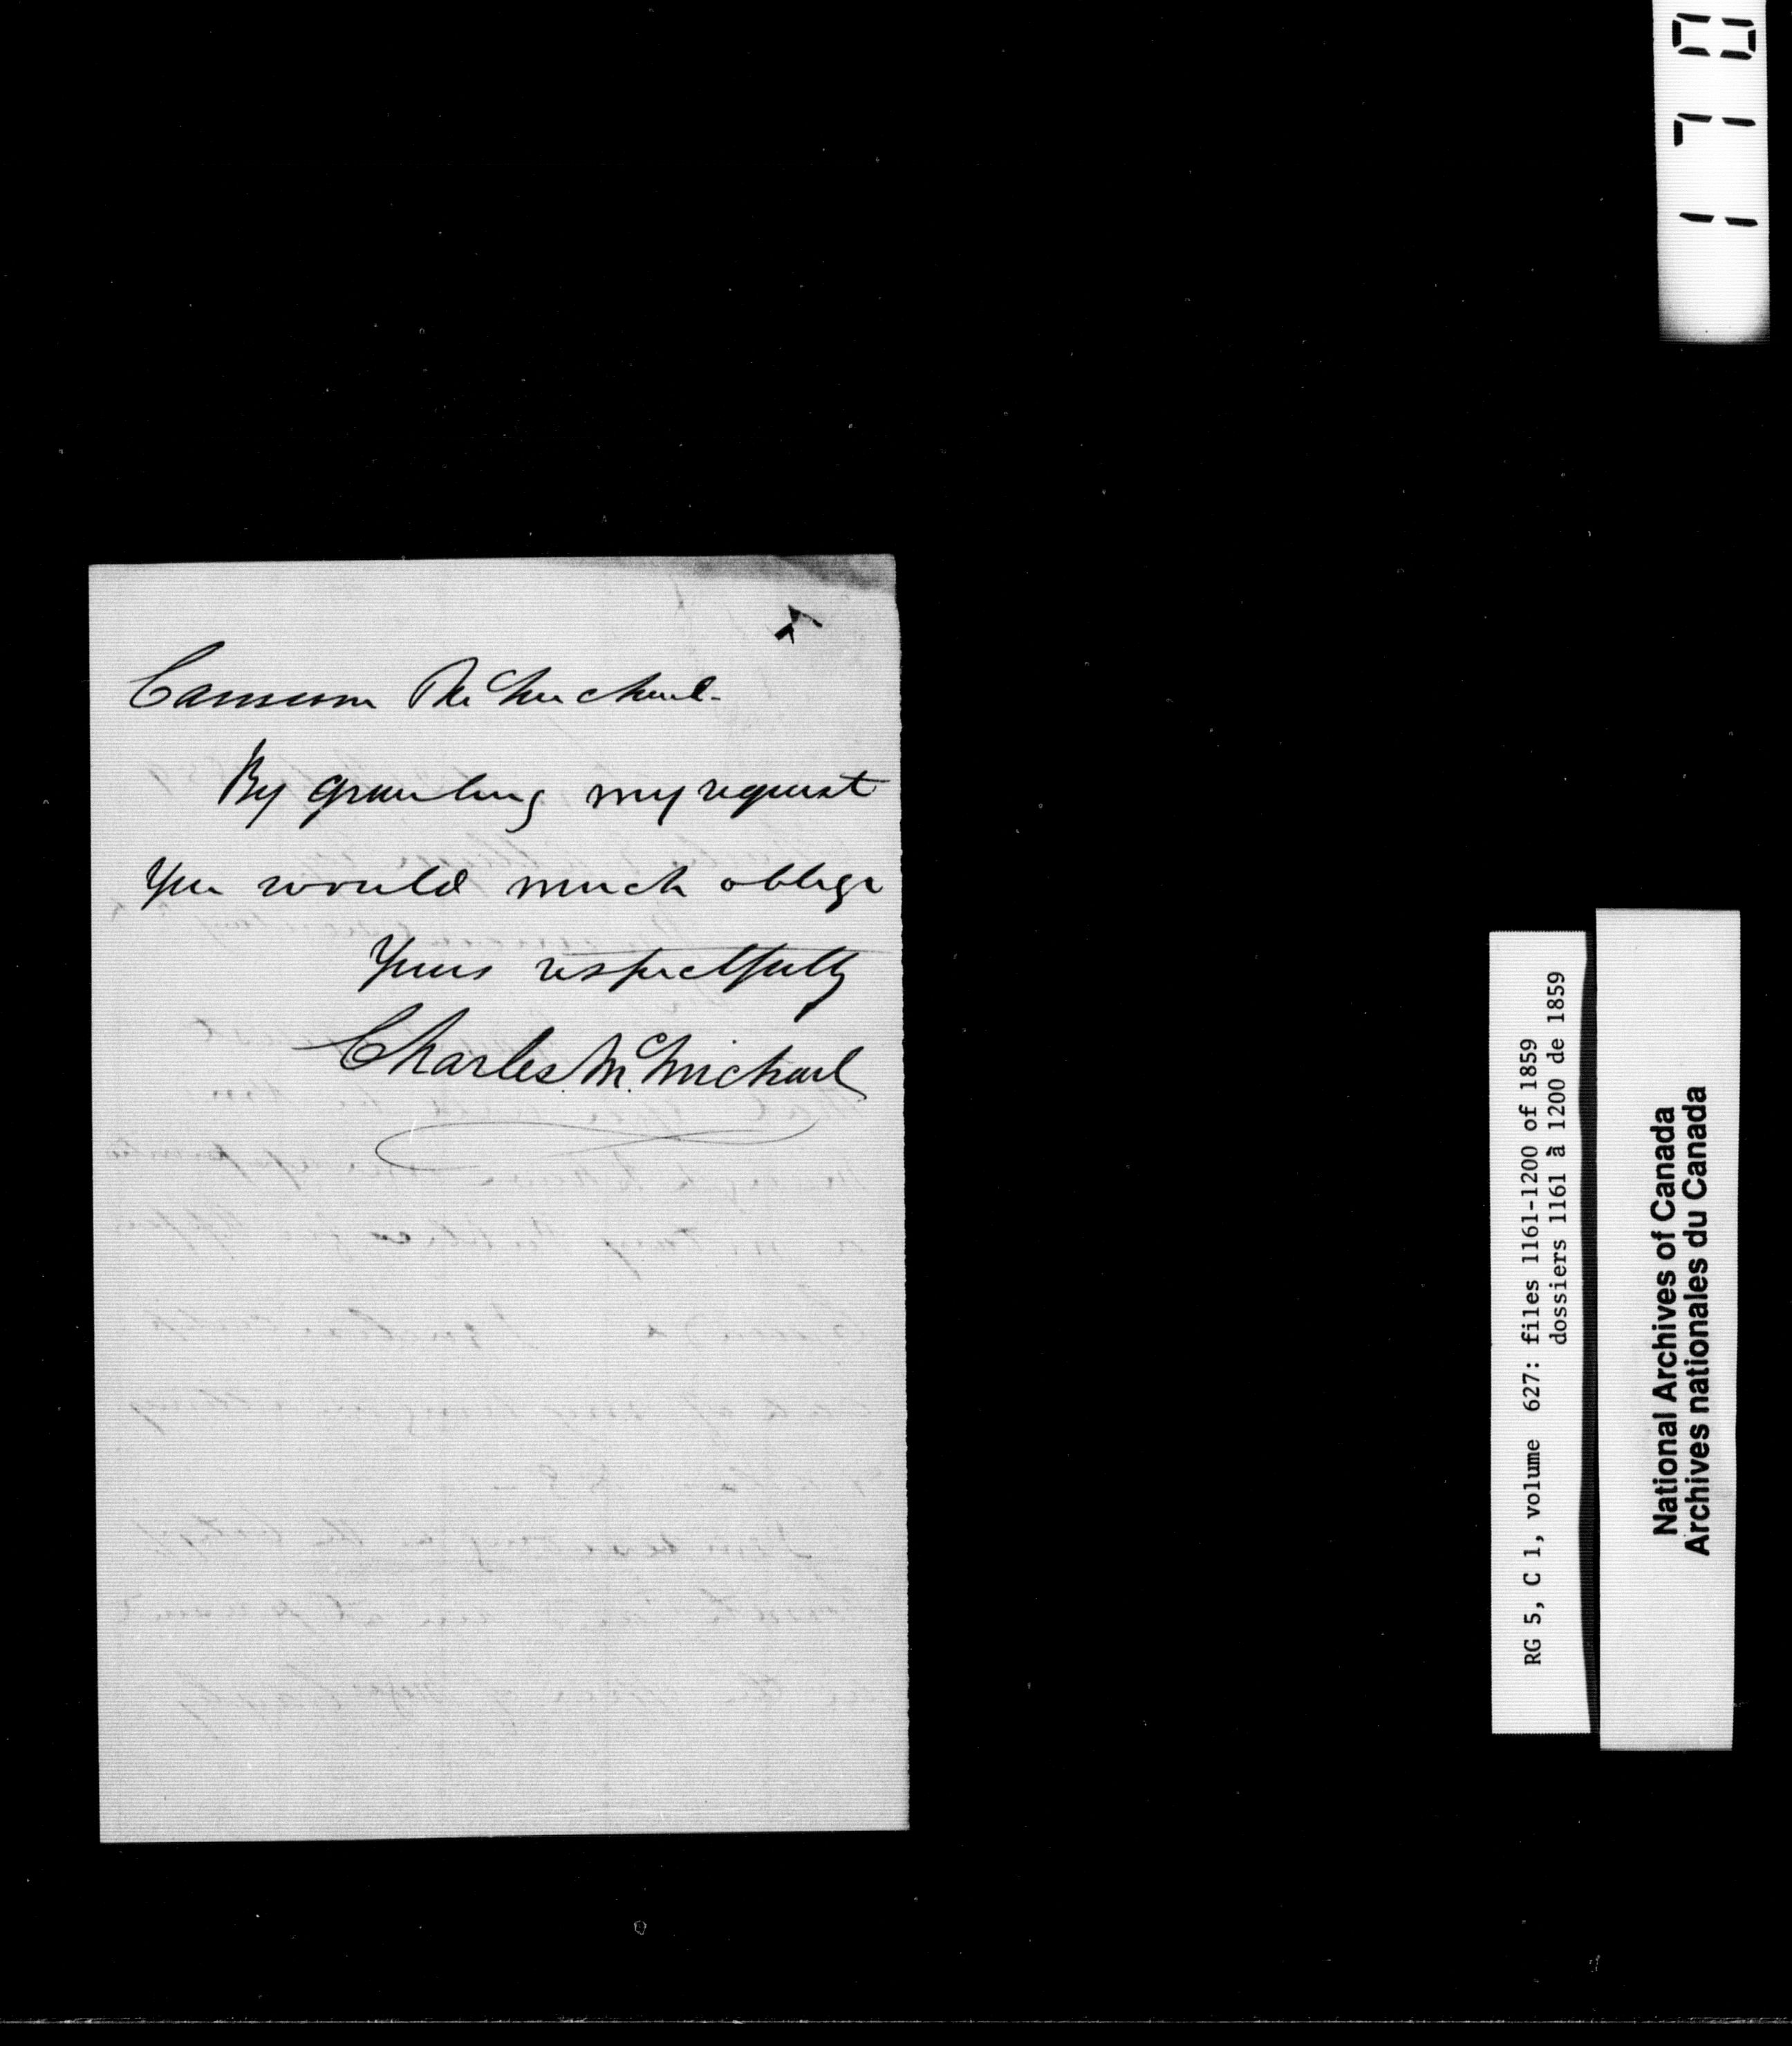 Cameron McMichael.
By granting my request
You would much oblige
Yours respectfully
Charles McMichael
1170
RG 5, C 1, volume 627: files 1161-1200 of 1859
dossiers 1161 à 1200 de 1859
National Archives of Canada
Archives nationales du Canada